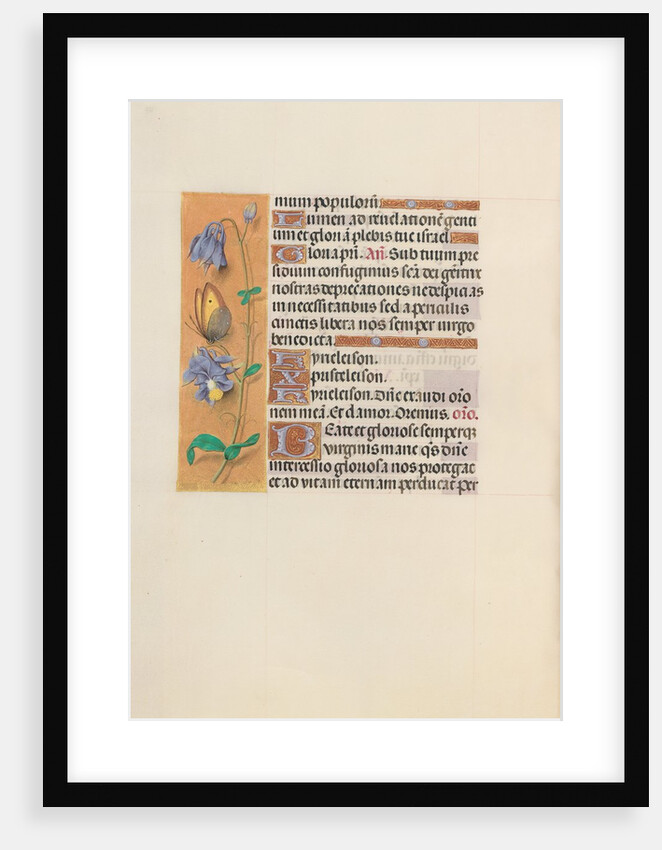 mum populorū
Lumen ad reuelationē genti
um et gloriā plebis tue israel
Gloria pr̄i. Añ. Sub tuum pre
sidium confugimus scā dei genitrix
nostras deprecationes ne despicias
in necessitatibus sed a periculis
cunctis libera nos semper uirgo
benedicta.
Kyrieleison.
Xp̄isteleison.
Kyrieleison. Dñe exaudi orō
nem meā. Et clamor. Oremus. orō.
Beate et gloriose semperqꝫ
virginis marie qs̄ dñe
intercessio gloriosa nos protegat
et ad vitam eternam perducat per